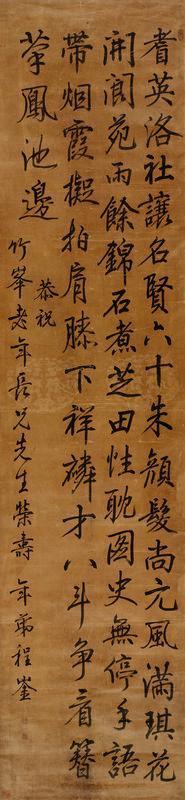 耆英洛社讓名賢六十朱顏髮尚元風滿琪花
開閬苑雨餘錦石煮芝田性耽圖史無停手語
帶烟霞擬拍肩膝下祥麟才八斗爭看簪
筆鳳池邊
恭祝
竹峯老年長兄先生榮壽 年弟程崟